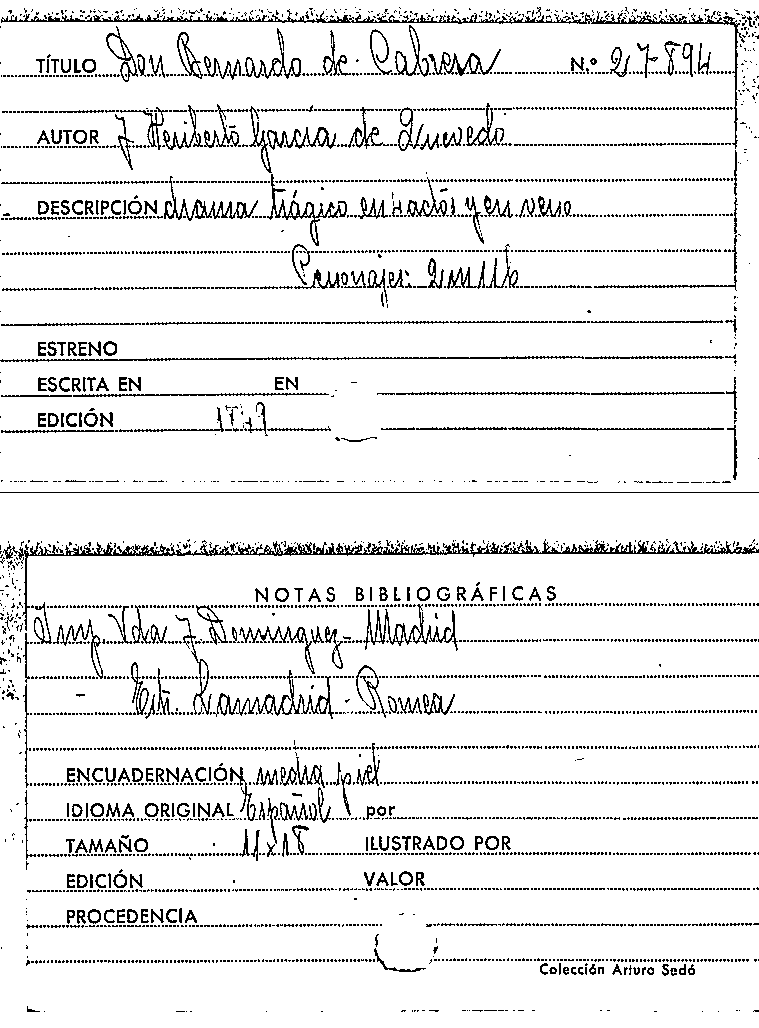 TÍTULO Don Bernardo de Cabrera N.º 27-894
AUTOR J Heriberto García de Quevedo
DESCRIPCIÓN drama trágico en 4 actos y en verso
Personajes: 2m 11b
ESTRENO
ESCRITA EN EN
EDICIÓN
NOTAS BIBLIOGRÁFICAS
Imp. Vda J. Dominguez - Madrid
- Estr. Lamadrid - Romea
ENCUADERNACIÓN media piel
IDIOMA ORIGINAL Español por
TAMAÑO 11x18 ILUSTRADO POR
EDICIÓN VALOR
PROCEDENCIA
Colección Arturo Sedó